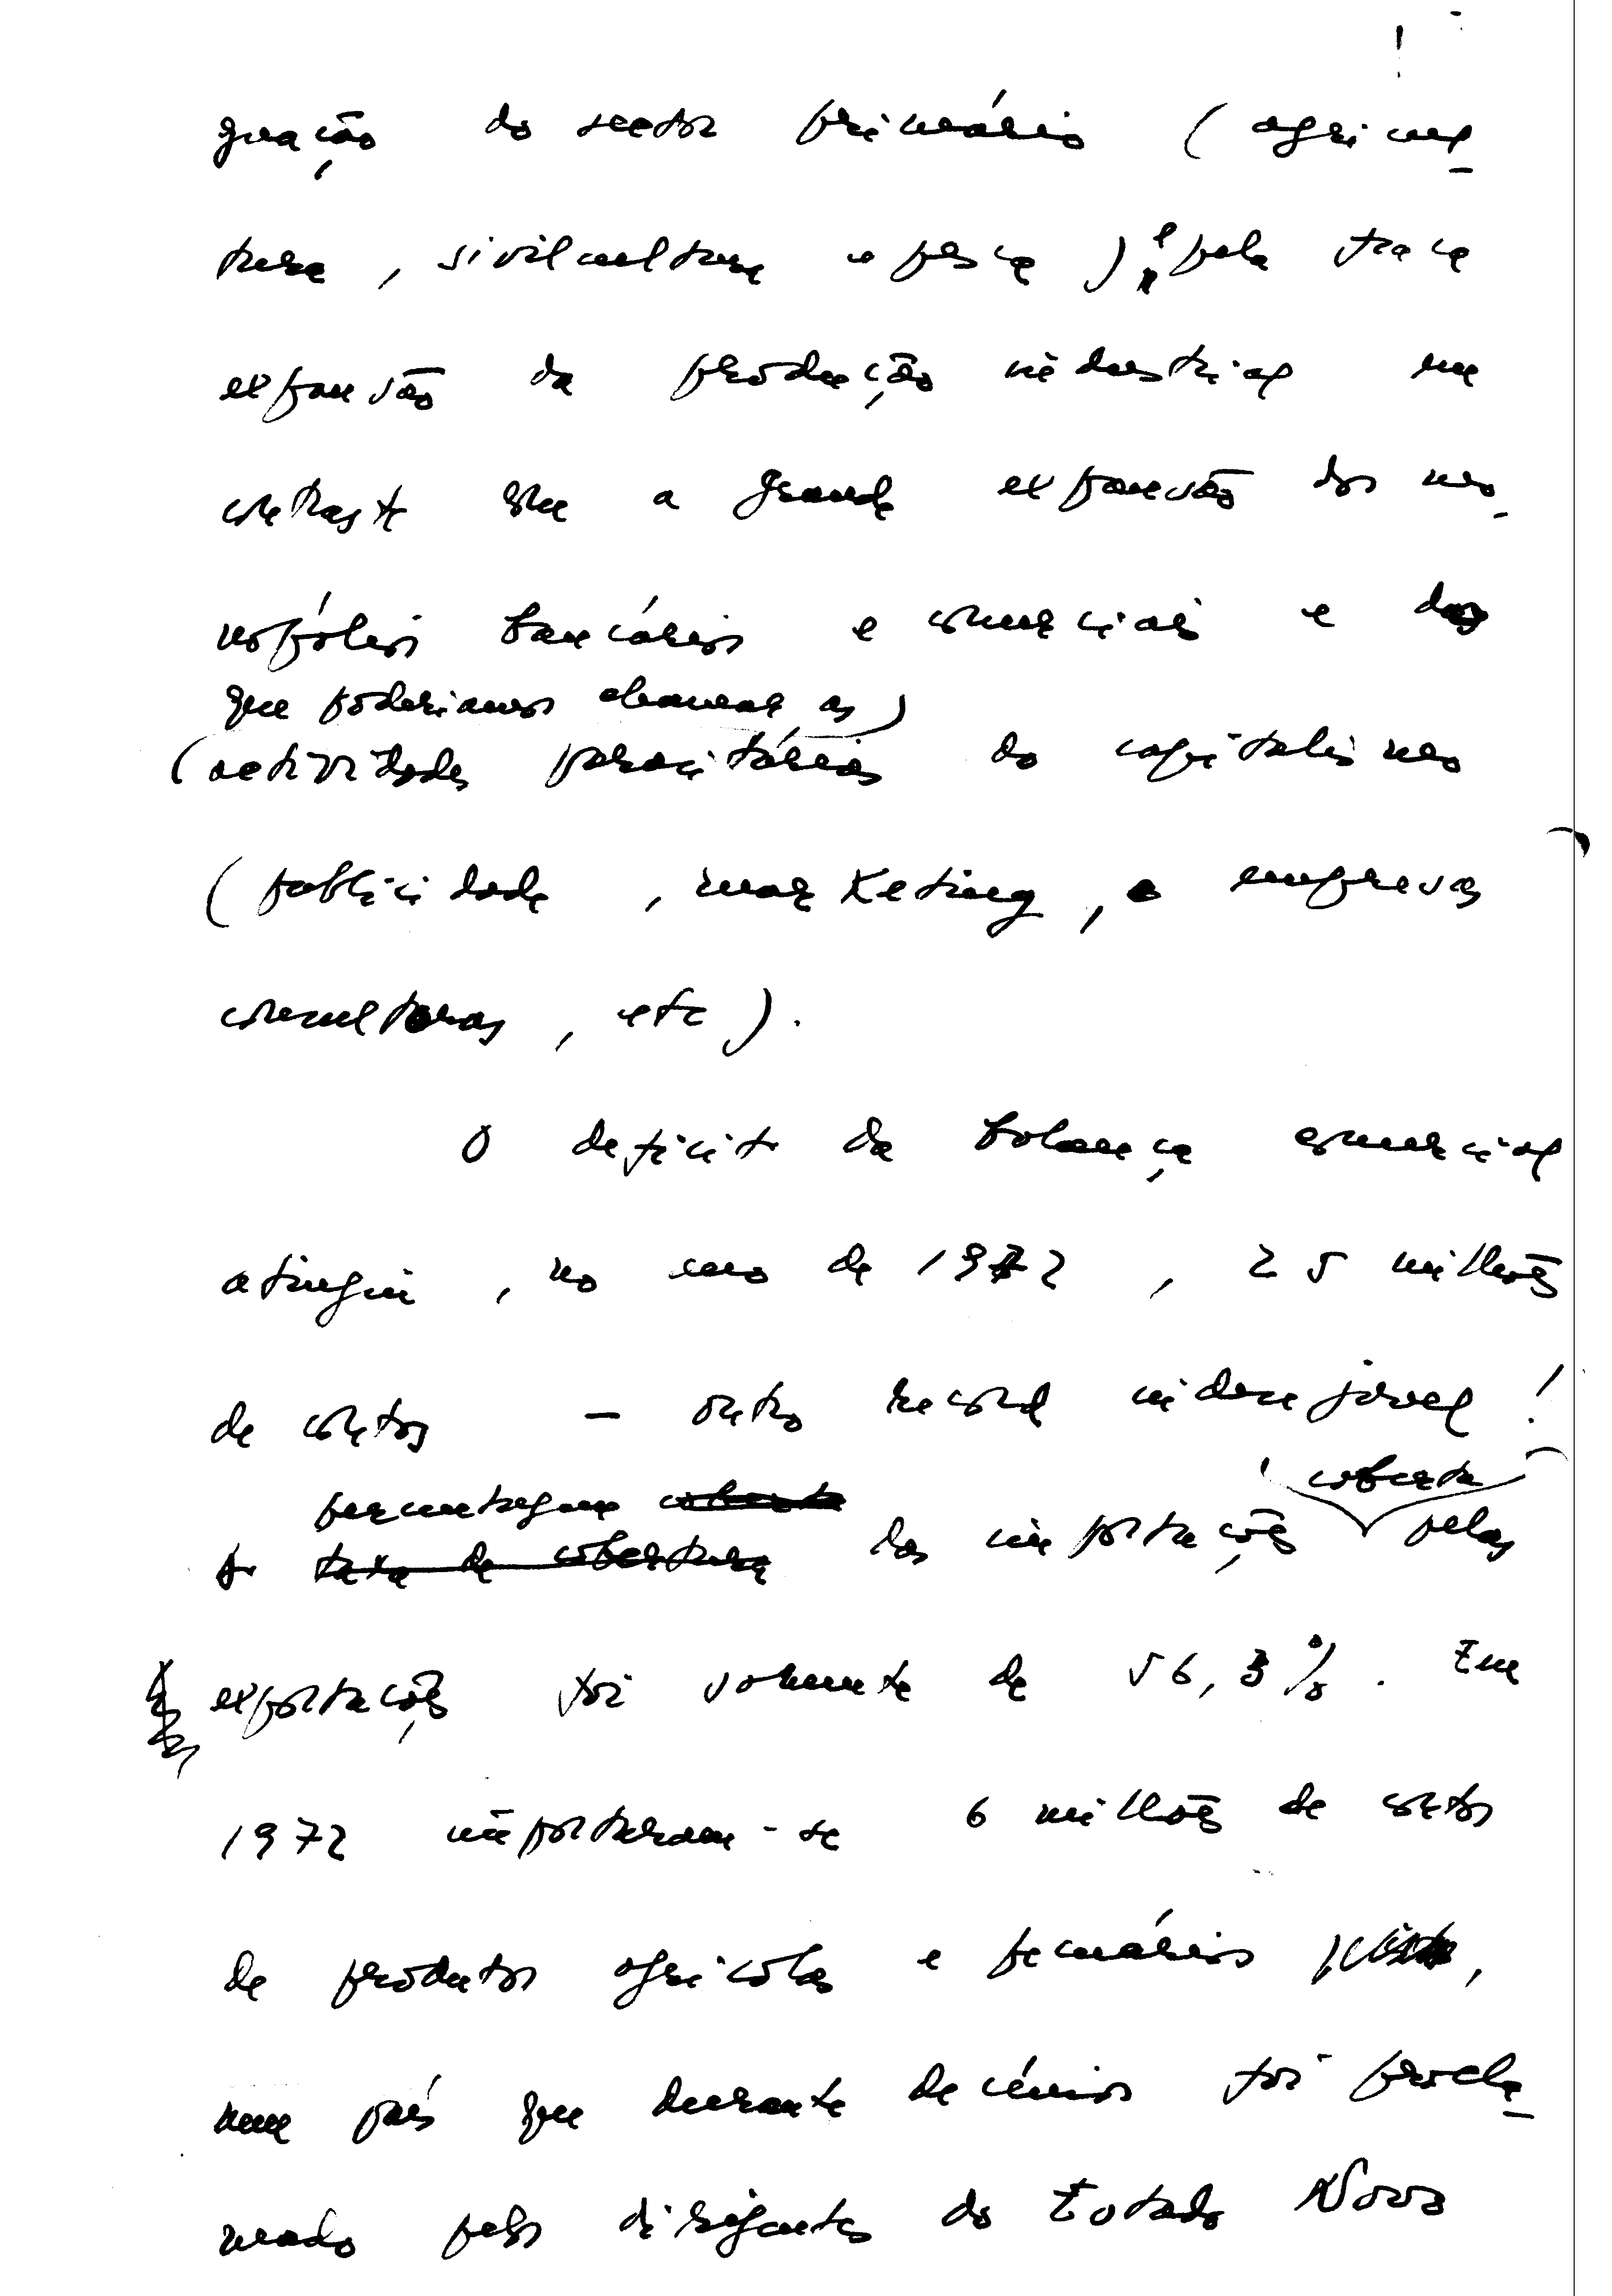 gnação do sector primário (agricul-
tura, sivilcultura e pesca) e pela fraca
expansão da produção industrial em
contraste com a grande expansão dos mo-
nopólios bancários e comerciais e das
que poderiamos chamar as
(actividades parasitárias do capitalismo
(publicidade, marketing, empresas
consultoras, etc).
O deficit da balança comercial
atingiu, no ano de 1972, 25 milhões
de contos - outro record indesejável!
percentagem coberta
coberta
A taxa de cobertura das importações pelas
exportações foi somente de 56,3%. Em
1972 importaram-se 6 milhões de contos
de produtos agrícolas e pecuários,
num país que durante decénios foi procla-
mado pelos dirigentes do Estado Novo